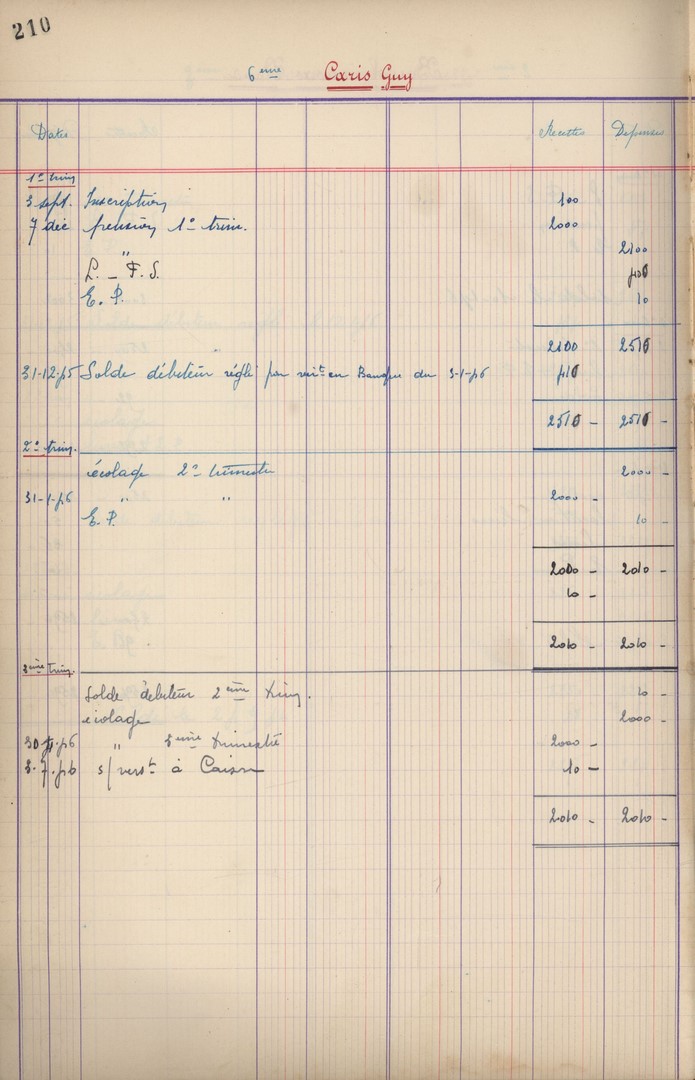 210
6ème Caris Guy
Dates Recettes Dépenses
1º trim
3 sept. Inscription 100
7 déc pension 1º trim. 2000
" 2100
L. _ F. S. 400
E. P. 10
2100 2510
31-12-55 Solde débiteur réglé par vert en Banque du 3-1-56 410
2510 - 2510 -
2º trim.
écolage 2º trimestre 2000 -
31-1-56 " " 2000 -
E. P. 10 -
2000 - 2010 -
10 -
2010 - 2010 -
3ème Trim.
Solde débiteur 2ème Trim. 10 -
écolage 2000 -
" 3ème Trimestre 2000 -
3-7-56 s/verst à Caisse 10 -
2010 - 2010 -